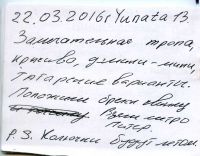 22.03.2016г Yunata 13.
Замечательная тропа,
красиво, дзинли-мини,
Татарские варианты.
Положили брелок
Взяли метро
Питер.
P.S. Колючки будут летом.